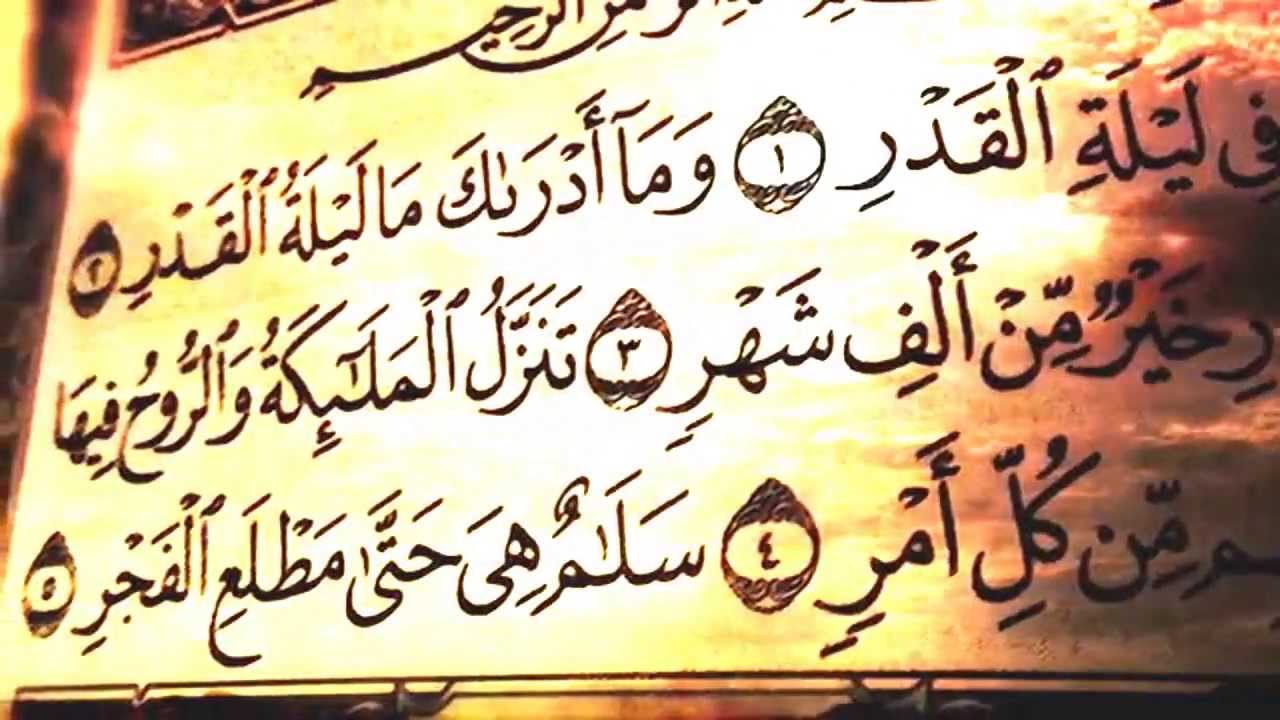 الرَّحِيمِ
فِي لَيْلَةِ ٱلْقَدْرِ ١ وَمَآ أَدْرَىٰكَ مَا لَيْلَةُ ٱلْقَدْرِ ٢
رِ خَيْرٌ مِّنْ أَلْفِ شَهْرٍ ٣ تَنَزَّلُ ٱلْمَلَٰٓئِكَةُ وَٱلرُّوحُ فِيهَا
مِّن كُلِّ أَمْرٍ ٤ سَلَٰمٌ هِىَ حَتَّىٰ مَطْلَعِ ٱلْفَجْرِ ٥